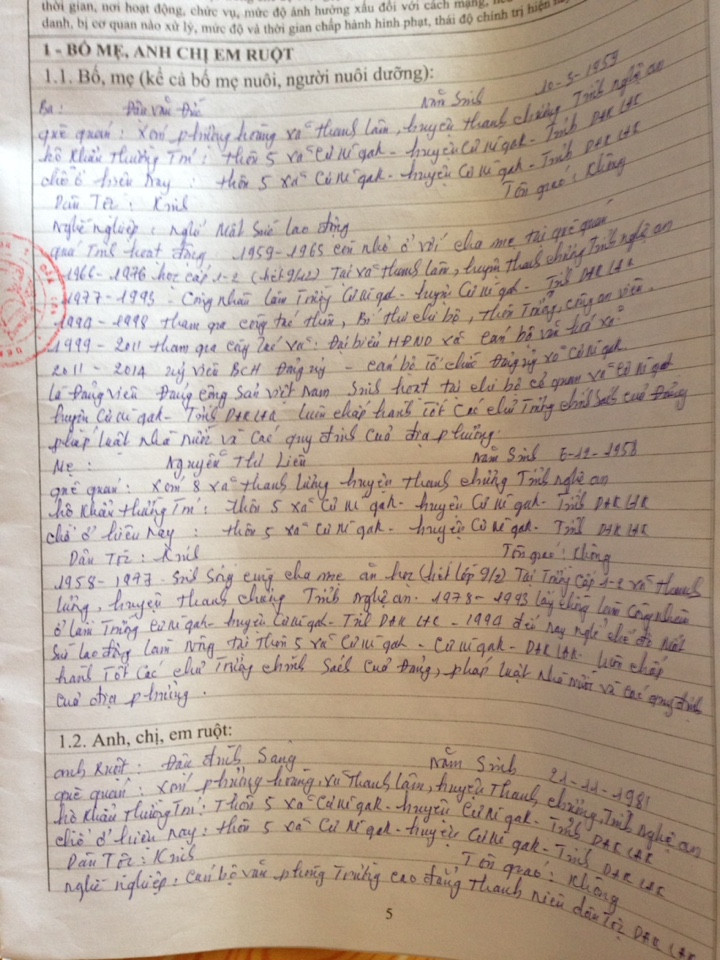 thời gian, nơi hoạt động, chức vụ, mức độ ảnh hưởng xấu đối với cách mạng,
danh, bị cơ quan nào xử lý, mức độ và thời gian chấp hành hình phạt, thái độ chính trị hiện
1 - BỐ MẸ, ANH CHỊ EM RUỘT
1.1. Bố, mẹ (kể cả bố mẹ nuôi, người nuôi dưỡng):
Ba : Đậu Văn Đức Năm Sinh 10-5-1959
quê quán : Xóm phượng hoàng xã Thanh Lâm, huyện Thanh chương Tỉnh nghệ an
hộ khẩu thường Trú : thôn 5 xã Cư Ni - huyện - Tỉnh ĐAK LAK
chỗ ở hiện nay : thôn 5 xã Cư Ni - huyện - Tỉnh ĐAK LAK
Dân Tộc : Kinh Tôn giáo : Không
nghề nghiệp : nghỉ Mất Sức lao động
quá Trình hoạt động 1959-1965 còn nhỏ ở với cha mẹ tại quê quán
1966-1976 học cấp 1-2 (hết 9/12) Tại xã Thanh Lâm, huyện Thanh chương Tỉnh nghệ an
1977-1993 - Công nhân Lâm Trường - huyện - Tỉnh ĐAK LAK
1994-1998 tham gia công tác thôn, Bí thư chi bộ, thôn Trưởng, công an viên.
1999-2011 tham gia công tác xã : Đại biểu HĐND xã cán bộ văn hoá xã
2011-2014 uỷ viên BCH Đảng uỷ - cán bộ tổ chức Đảng uỷ xã
là Đảng viên Đảng cộng Sản việt Nam Sinh hoạt tại chi bộ cơ quan xã
huyện - Tỉnh ĐAK LAK luôn chấp hành tốt các chủ Trương chính Sách của Đảng
pháp luật nhà nước và các quy định của địa phương.
Mẹ : Nguyễn Thị Liên Năm Sinh -12-1958
quê quán : Xóm 8 xã Thanh Lương huyện Thanh chương Tỉnh nghệ an
hộ khẩu thường Trú : thôn 5 xã - huyện - Tỉnh ĐAK LAK
chỗ ở hiện nay : thôn 5 xã - huyện - Tỉnh ĐAK LAK
Dân Tộc : Kinh Tôn giáo : Không
1958-1977 Sinh Sống cùng cha mẹ ăn học (hết lớp 9/12) Tại Trường cấp 1-2 xã Thanh
Lương, huyện Thanh chương Tỉnh nghệ an. 1978-1993 lấy chồng làm Công nhân
ở lâm Trường - huyện - Tỉnh ĐAK LAK - 1994 đến nay nghỉ chế độ Mất
Sức lao động làm nông tại thôn 5 xã - ĐAK LAK. luôn chấp
hành Tốt các chủ Trương chính Sách của Đảng, pháp luật nhà nước và các quy định
của địa phương.
1.2. Anh, chị, em ruột:
anh Ruột : Đậu đình Sang Năm Sinh 21-11-1981
quê quán : Xóm phượng hoàng, xã Thanh Lâm, huyện Thanh chương Tỉnh nghệ an
hộ khẩu Thường Trú : Thôn 5 xã - huyện - Tỉnh ĐAK LAK
chỗ ở hiện nay : thôn 5 xã - huyện - Tỉnh ĐAK LAK
Dân Tộc : Kinh Tôn giáo : Không
nghề nghiệp : Cán bộ văn phòng Trường cao đẳng Thanh niên dân Tộc ĐAK LAK
5